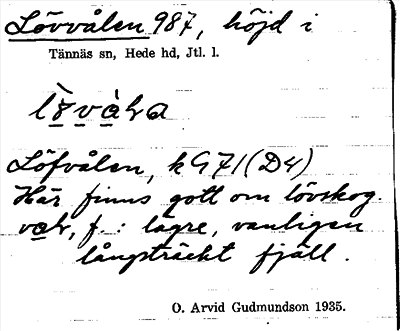 Lövvålen 987, höjd i
Tännäs sn, Hede hd, Jtl. l.
Löfvålen, k G71 (D4)
Här finns gott om lövskog.
f.: lägre, vanligen
långsträckt fjäll.
O. Arvid Gudmundson 1935.